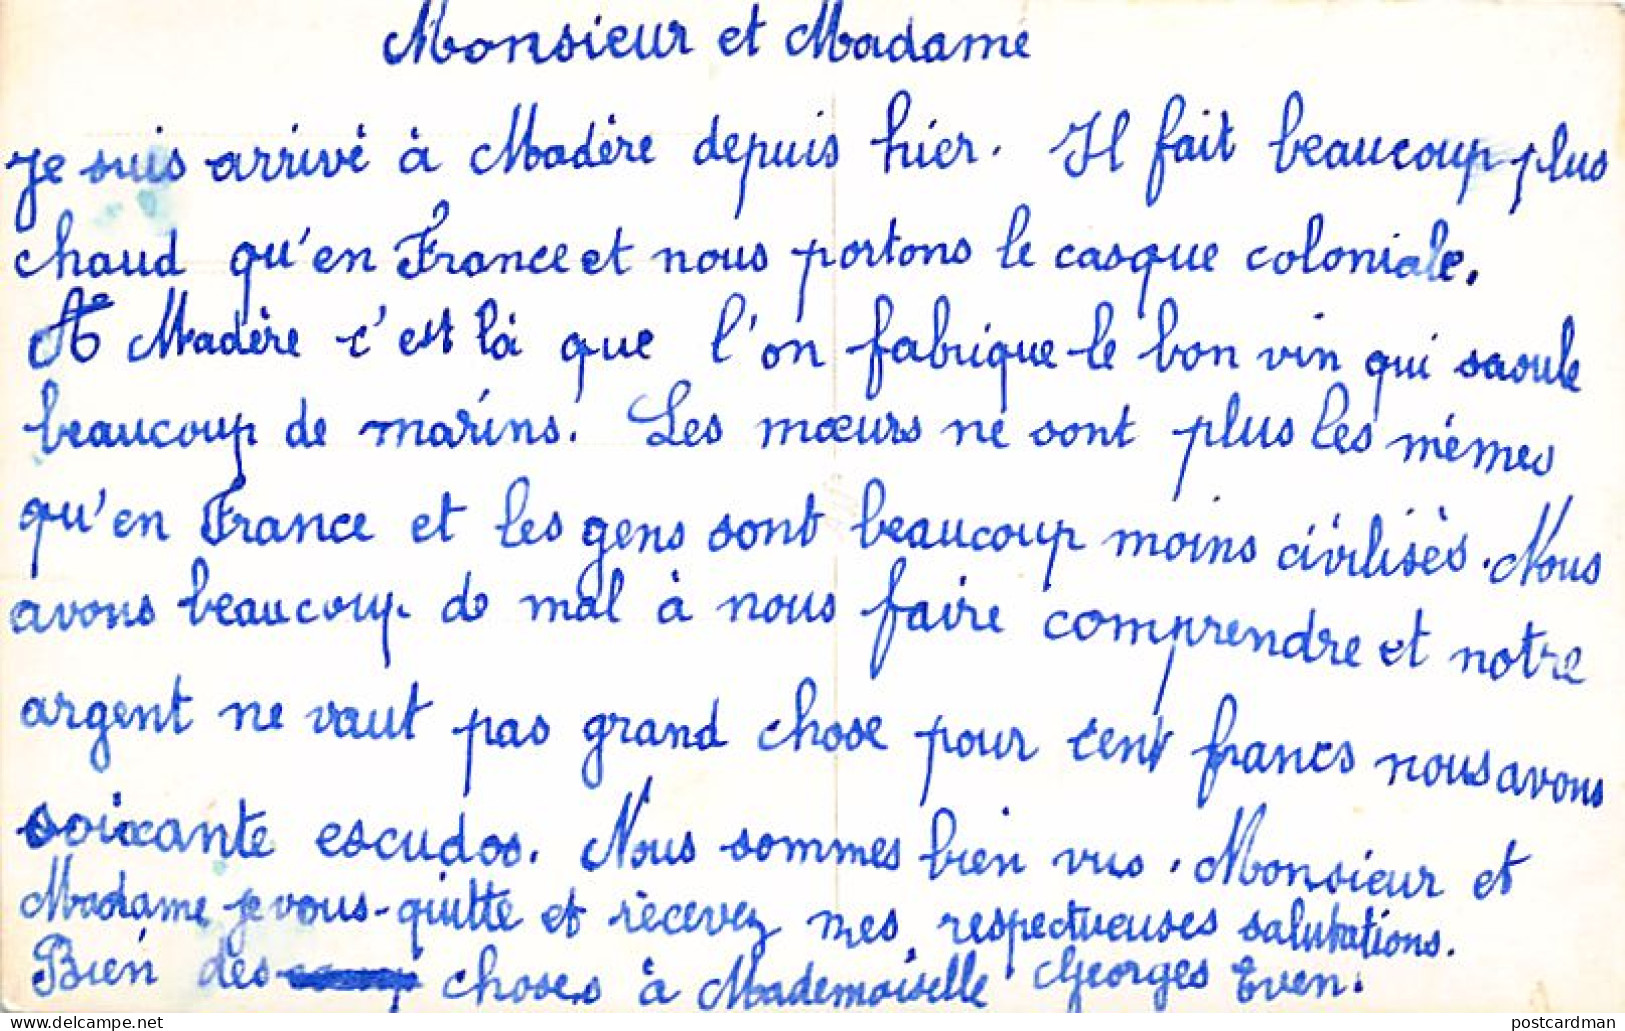 Monsieur et Madame
Je suis arrivé à Madère depuis hier. Il fait beaucoup plus
chaud qu'en France et nous portons le casque coloniale.
A Madère c'est là que l'on fabrique le bon vin qui saoule
beaucoup de marins. Les mœurs ne sont plus les mêmes
qu'en France et les gens sont beaucoup moins civilisés. Nous
avons beaucoup de mal à nous faire comprendre et notre
argent ne vaut pas grand chose pour cent francs nous avons
soixante escudos. Nous sommes bien vus. Monsieur et
Madame je vous-quitte et recevez mes respectueuses salutations.
Bien des choses à Mademoiselle Georges Even.
delcampe.net
postcardman